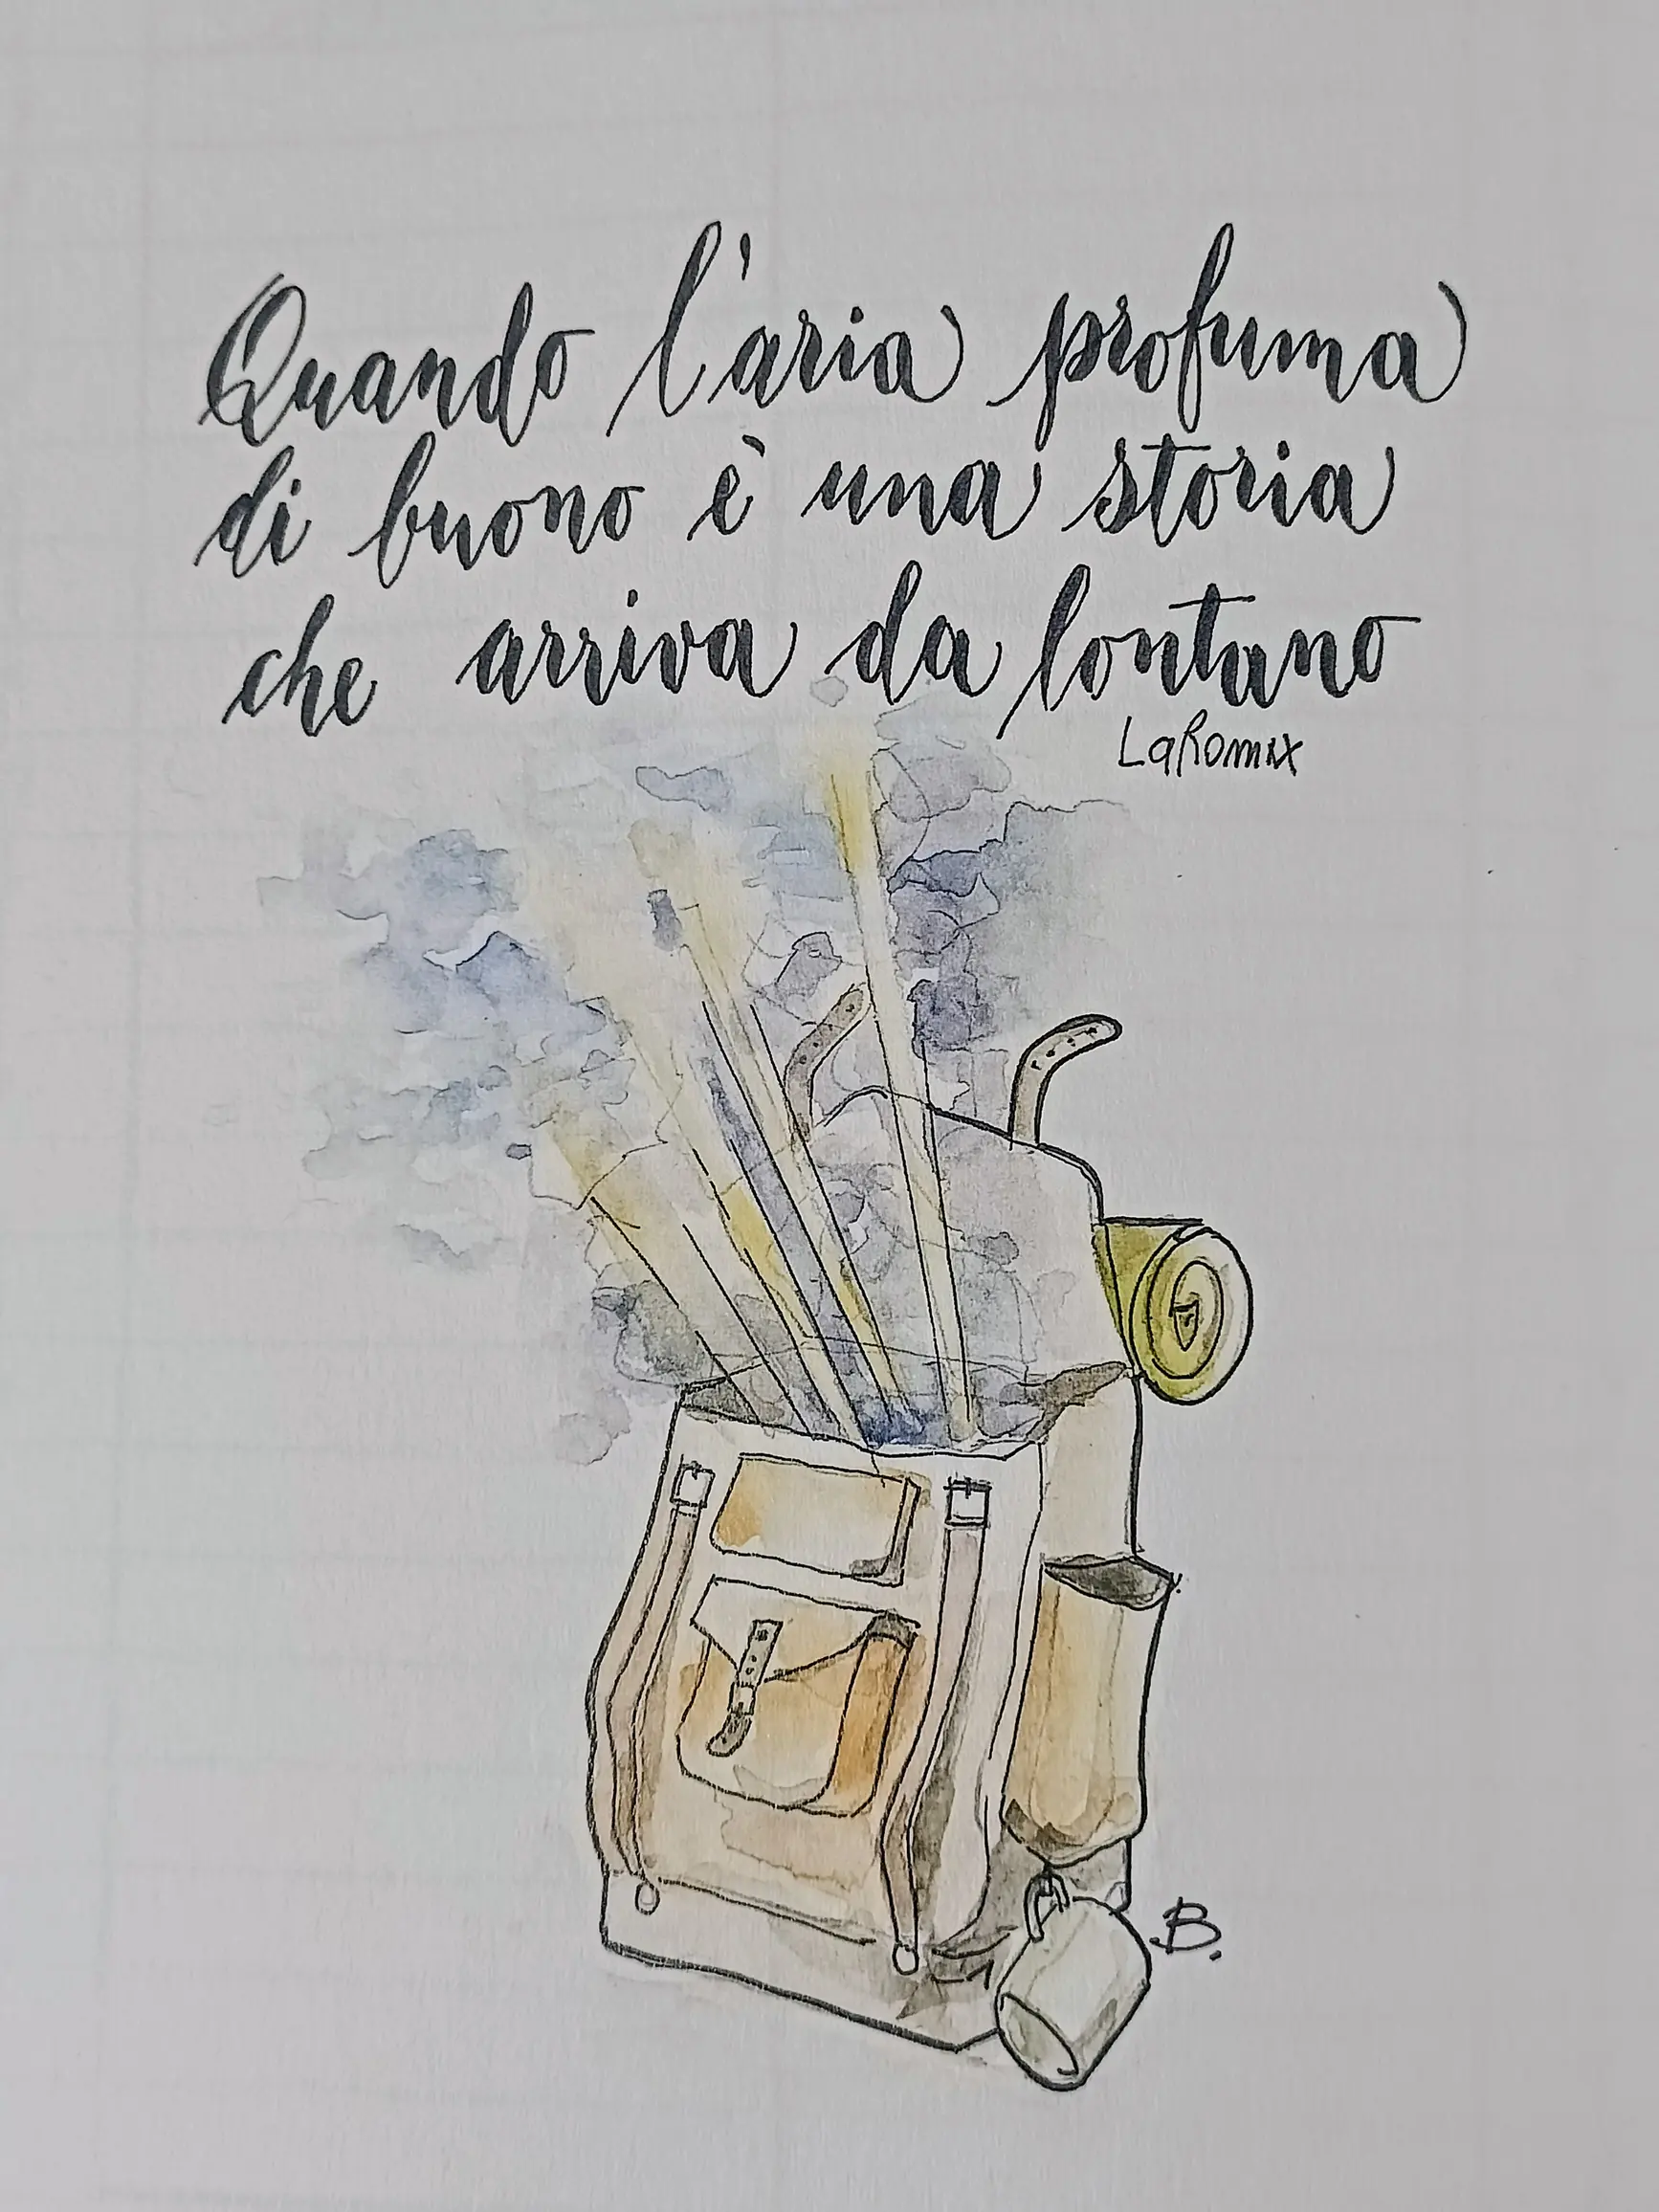 Quando l'aria profuma
di buono è una storia
che arriva da lontano
LaRomix
B.